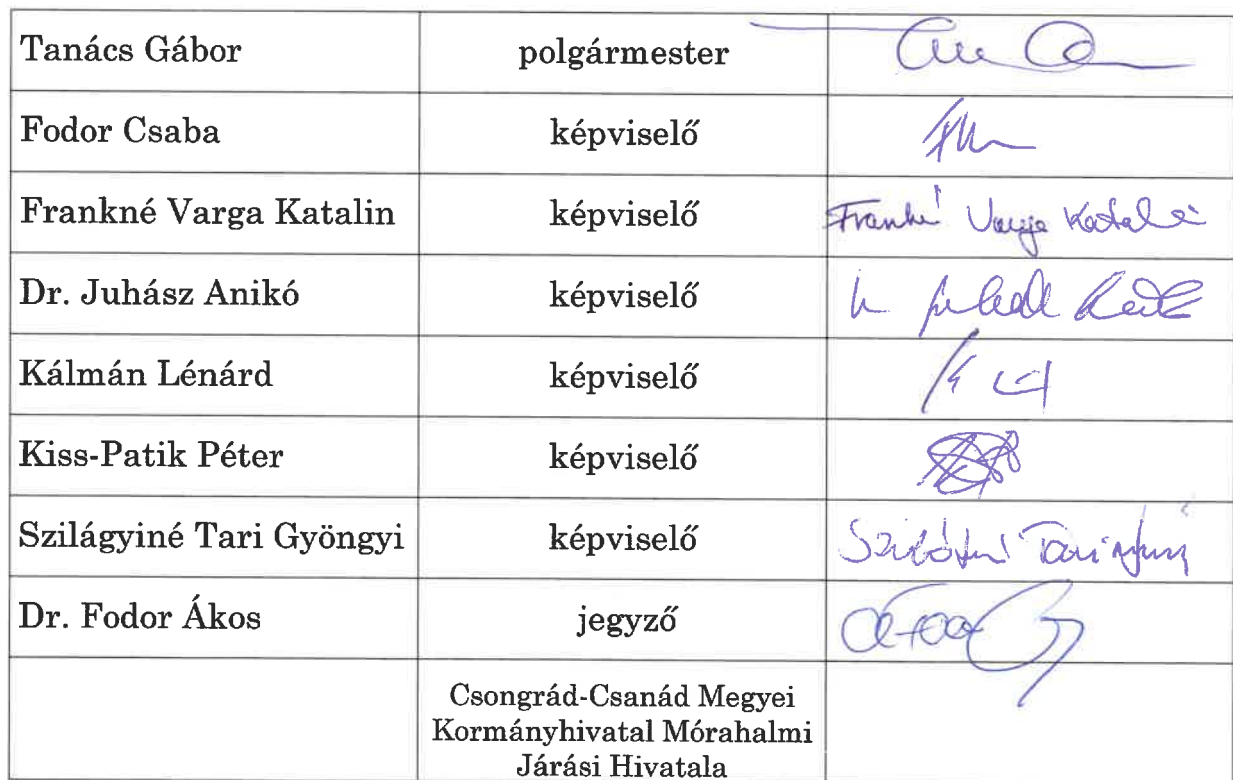 Tanács Gábor polgármester
Fodor Csaba képviselő
Frankné Varga Katalin képviselő Frankné Varga Katalin
Dr. Juhász Anikó képviselő
Kálmán Lénárd képviselő
Kiss-Patik Péter képviselő
Szilágyiné Tari Gyöngyi képviselő
Dr. Fodor Ákos jegyző
Csongrád-Csanád Megyei
Kormányhivatal Mórahalmi
Járási Hivatala